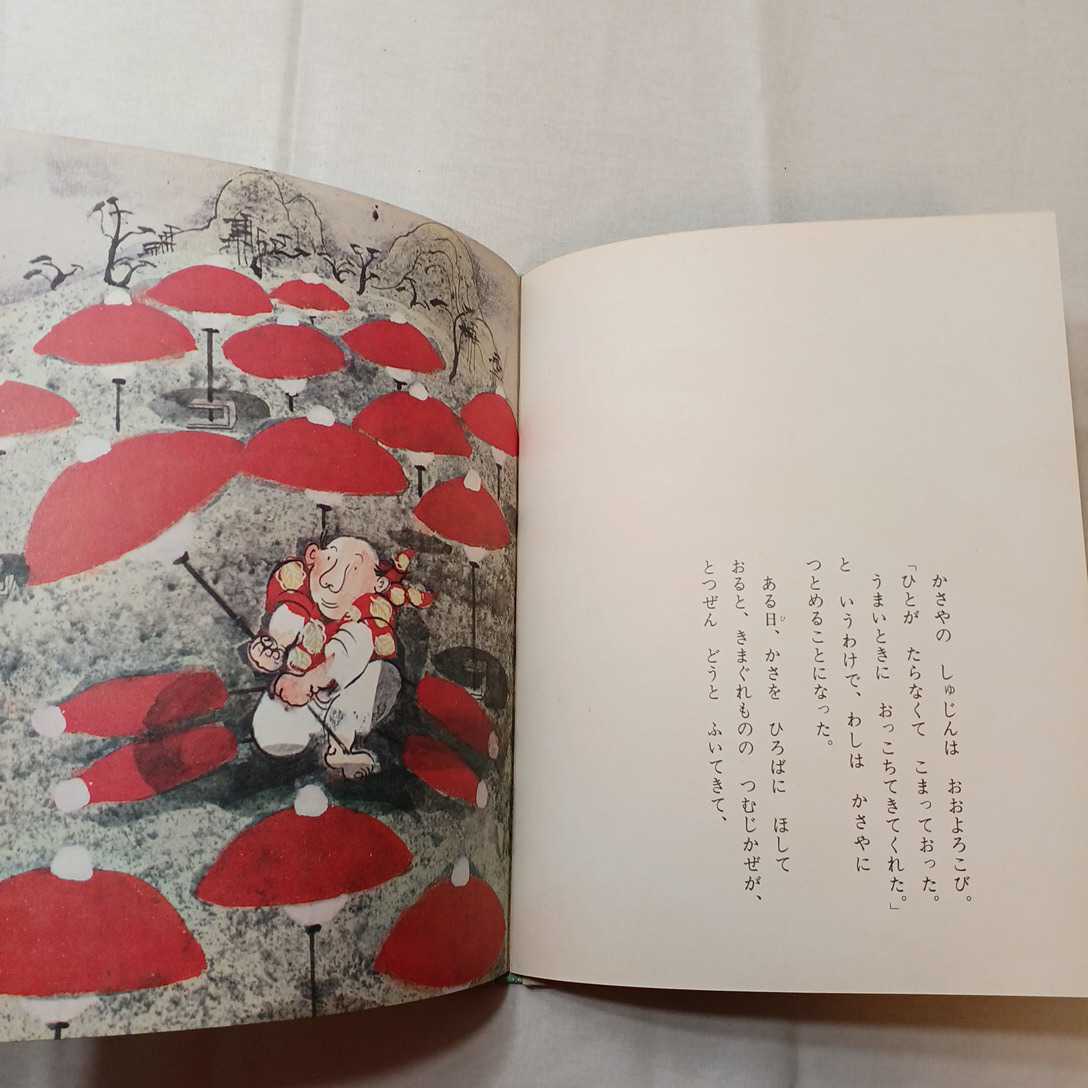 かさやの　しゅじんは　おおよろこび。
「ひとが　たらなくて　こまっておった。
うまいときに　おっこちてきてくれた。」
と　いうわけで、わしは　かさやに
つとめることになった。
ある日、かさを　ひろばに　ほして
おると、きまぐれものの　つむじかぜが、
とつぜん　どうと　ふいてきて、